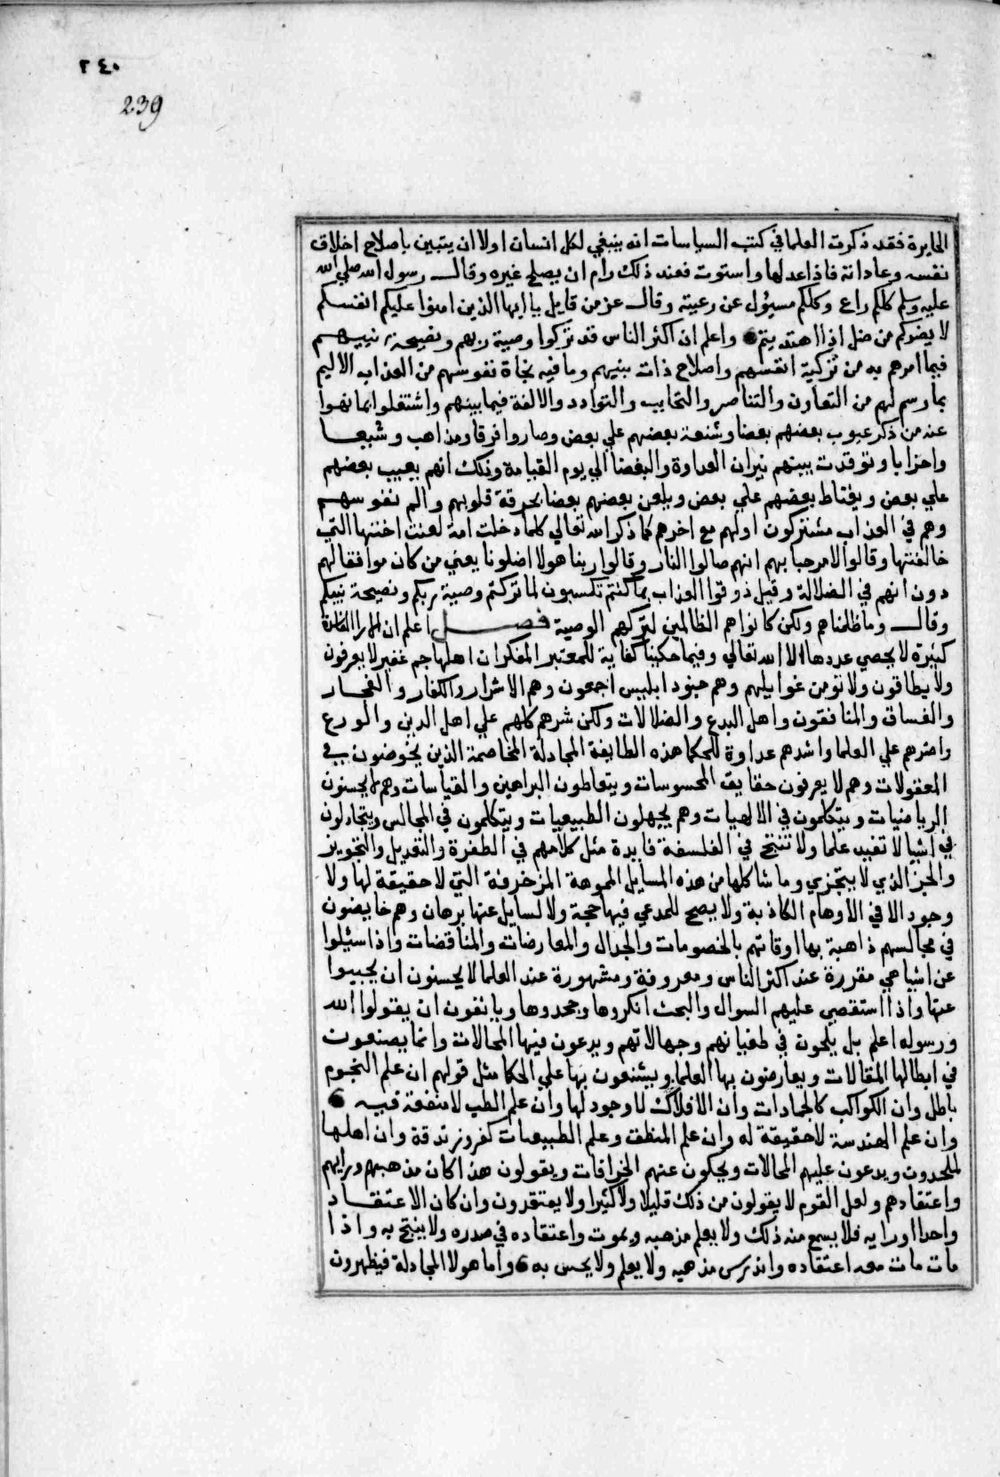 ٢٤٠
239
الجايرة فقد ذكرت العلما في كتب السياسات انه ينبغي لكل انسان اولا ان يتبين باصلاح اخلاق
نفسه وعاداته فاذا عدلها واستوت فعند ذلك رام ان يصلح غيره وقال رسول الله صلي الله
عليه وسلم كلكم راع وكلكم مسيول عن رعيته وقال عز من قايل يا ايها الذين امنوا عليكم انفسكم
لا يضركم من ضل اذا اهتديتم واعلم ان اكثر الناس قد تركوا وصية ربهم ونصيحة نبيهم
فيما امرهم به من تزكية انفسهم واصلاح ذات بينهم وما فيه نجاة نفوسهم من العذاب الاليم
بما رسم لهم من التعاون والتناصر والتحابب والتوادد والالفة فيما بينهم واشتغلوا بما نهوا
عنه من ذكر عيوب بعضهم بعضا وشنعة بعضهم علي بعض وصاروا فرقا ومذاهب وشيعا
واحزابا وتوقدت بينهم نيران العداوة والبغضا الي يوم القيامة وذلك انهم يعيب بعضهم
علي بعض ويغتاط بعضهم علي بعض ويلعن بعضهم بعضا بحرقة قلوبهم والم نفوسهم
وهم في العذاب مشتركون اولهم مع اخرهم كما ذكر الله تعالي كلما دخلت امة لعنت اختها التي
خالفتها وقالوا لا مرحبا بهم انهم صالوا النار وقالوا ربنا هولا اضلونا يعني من كان موافقا لهم
دون انهم في الضلالة وقيل ذوقوا العذاب بما كنتم تكسبون لما تركتم وصية ربكم ونصيحة نبيكم
وقال وما ظلمناهم ولكن كانوا هم الظالمين لتركهم الوصية فصل اعلم ان
كثيرة لا يحصي عددها الا الله تعالي وفيما حكينا كفاية للمعتبر المفكر وان اهلها جم غفير لا يعرفون
ولا يطاقون ولا تومن غوايلهم وهم جنود ابليس اجمعون وهم الاشرار والكفار والفجار
والفساق والمنافقون واهل البدع والضلالات ولكن شرهم كلهم علي اهل الدين والورع
واضرهم علي العلما واشدهم عداوة للحكما هذه الطايفة المجادلة المخاصمة الذين يخوضون في
المعقولات وهم لا يعرفون حقايق المحسوسات ويتعاطون البراهين والقياسات وهم لا يحسنون
الرياضيات ويتكلمون في الالهيات وهم يجهلون الطبيعيات ويتكلمون في المجالس ويتجادلون
في اشيا لا تفيد علما ولا تنتج في الفلسفة فايدة مثل كلامهم في الطفرة والتعديل والتجويز
والجز الذي لا يتجزي وما شاكلها من هذه المسايل المموهة المزخرفة التي لا حقيقة لها ولا
وجود الا في الاوهام الكاذبة ولا يصح للمدعي فيها حجة ولا لسايل عنها برهان وهم خايضون
في مجالسهم ذاهبة بها اوقاتهم بالخصومات والجدال والمعارضات والمناقضات واذا سيلوا
عن اشيا هي مقررة عند اكثر الناس ومعروفة ومشهورة عند العلما لا يحسنون ان يجيبوا
عنها واذا استقصي عليهم السوال والبحث انكروها وجحدوها ويانفون ان يقولوا الله
ورسوله اعلم بل يلحون في طغيانهم وجهالاتهم ويدعون فيها المحالات وانما يصنعون
في ابطالها المقالات ويعارضون بها العلما ويشنعون بها علي الحكما مثل قولهم ان علم النجوم
باطل وان الكواكب كالجمادات وان الافلاك لا وجود لها وان علم الطب لا منفعة فيه
وان علم الهندسة لا حقيقة له وان علم المنطق وعلم الطبيعيات كفر وزندقة وان اهلها
ملحدون ويدعون عليهم المحالات ويحكون عنهم الخرافات ويقولون هذا كان مذهبهم ورايهم
واعتقادهم ولعل القوم لا يقولون من ذلك قليلا ولا كثيرا ولا يعتقدون وان كان الاعتقاد
واحدا ورايه فلا يسمع منه ذلك ولا يعلم مذهبه ويموت واعتقاده في صدره ولا ينتج به واذا
مات مات معه اعتقاده واندرس مذهبه ولا يعلم ولا يحس به واما هولا المجادلة فيظهرون